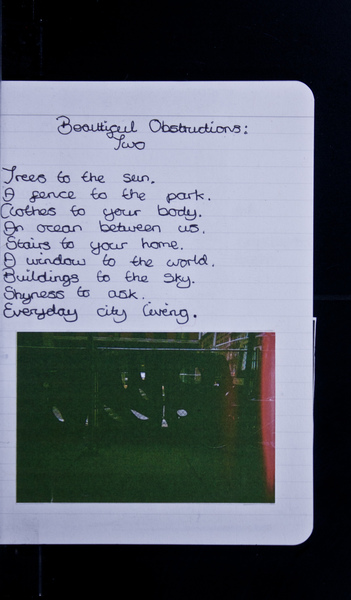 Beautiful Obstructions:
Two
Trees to the sun.
A fence to the park.
Clothes to your body.
An ocean between us.
Stairs to your home.
A window to the world.
Buildings to the sky.
Shyness to ask.
Everyday city living.